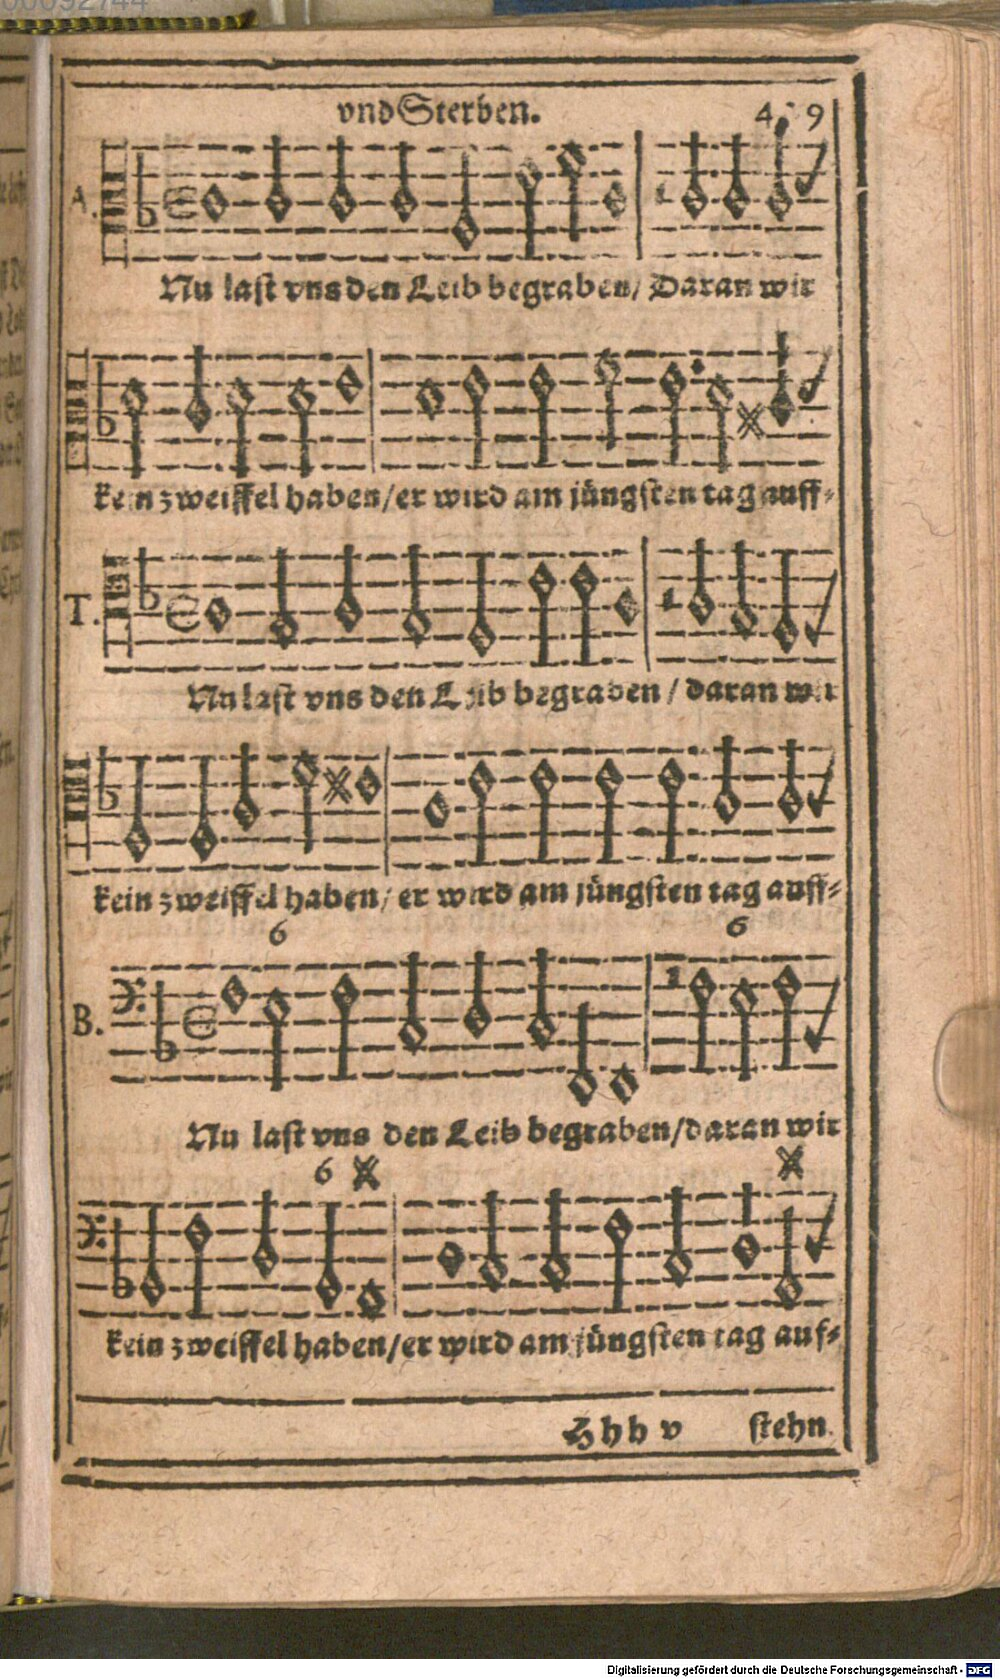 00092744
vnd Sterben. 4 9
A.
Nu last vns den Leib begraben/ Daran wir
kein zweiffel haben/ er wird am jüngsten tag auff-
T.
Nu last vns den Leib begraben / daran wir
kein zweiffel haben/ er wird am jüngsten tag auff-
6 6
B.
Nu last vns den Leib begraben/ daran wir
6
kein zweiffel haben/ er wird am jüngsten tag auf-
Hhh v stehn.
Digitalisierung gefördert durch die Deutsche Forschungsgemeinschaft - DFG